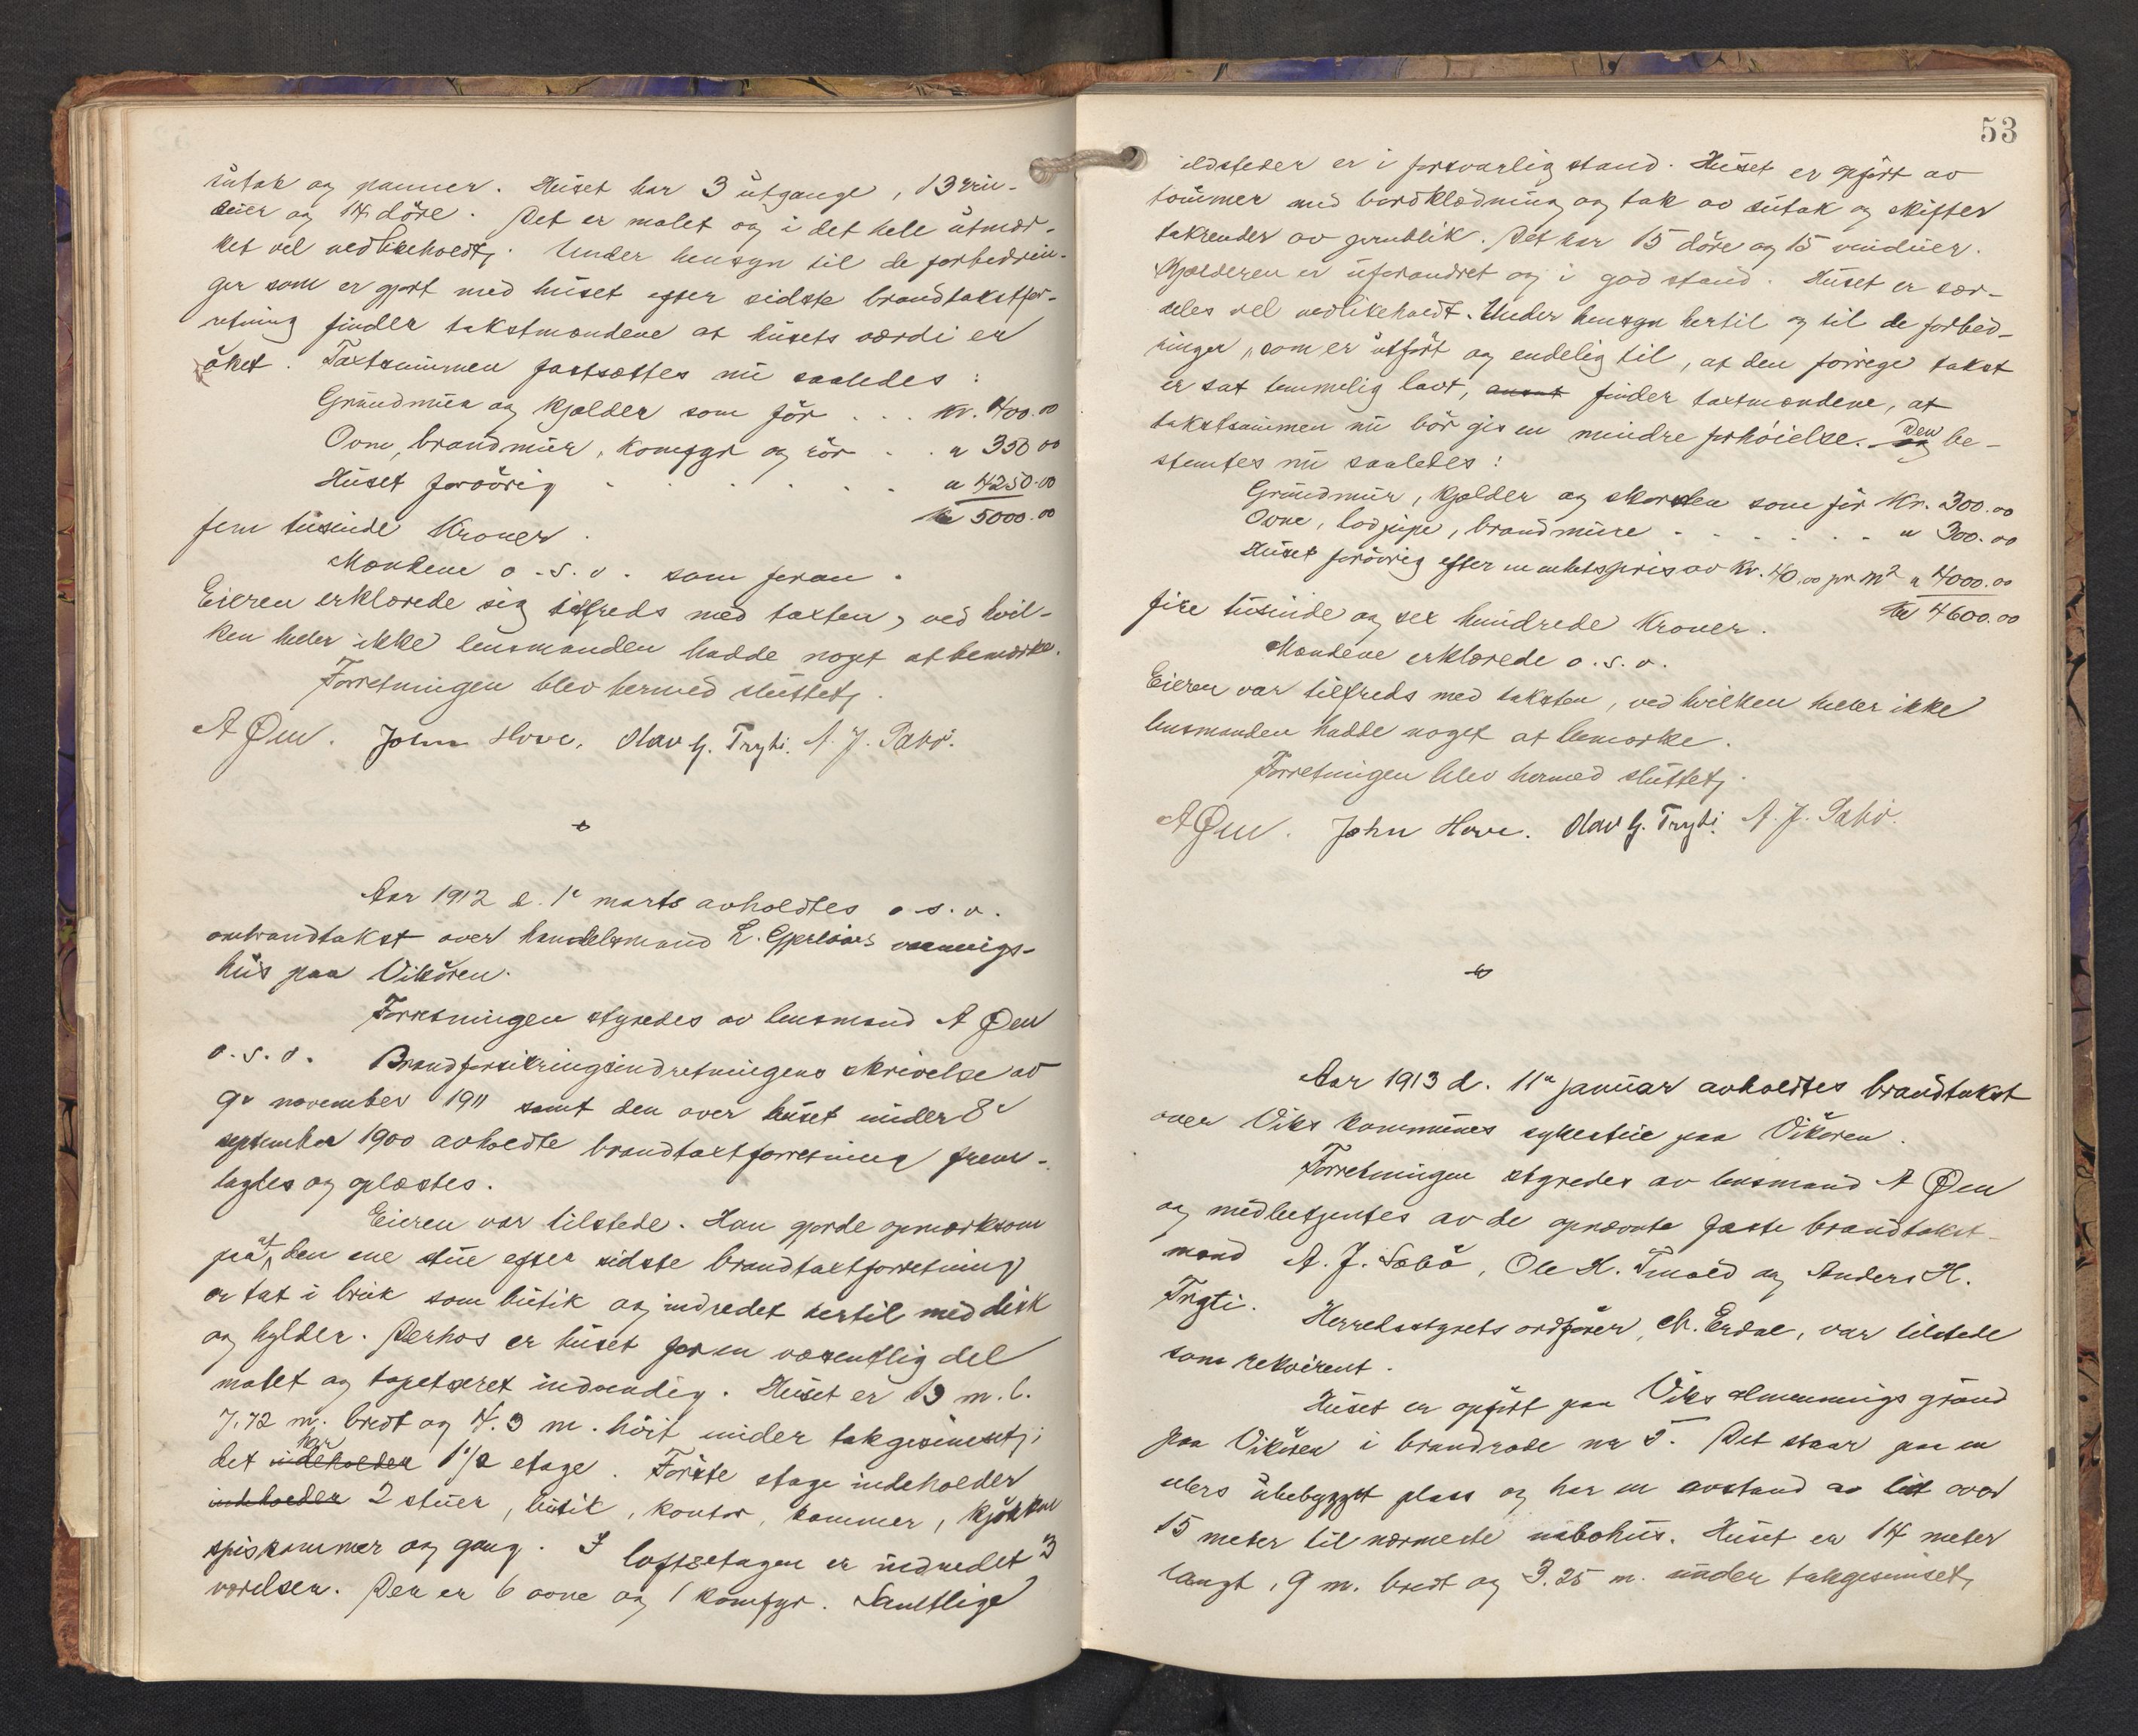 sutak og panner. Huset har 3 utgange, 13 vin-
duer og 14 döre. Det er malet og i det hele utmær-
ket vel vedlikeholdt. Under hensyn til de forbedrin-
ger som er gjort med huset efter sidste brandtakstfor-
retning finder takstmændene at husets værdi er
öket. Taxtsummen fastsættes nu saaledes:
Grundmur og kjelder som för . . . kr. 400.00
Ovne, brandmur, komfyr og rör . . " 350 00
Huset forövrig . . . . . . . " 4250.00
kr 5000.00
fem tusinde Kroner.
Mændene o.s.v. som foran.
Eieren erklærede sig tilfreds med taxten, ved hvil-
ken heller ikke lensmanden hadde noget at bemærke.
Forretningen blev hermed sluttet.
A Øen. John Hove. Olav G. Tryti. A. J. Sæbö.
Aar 1912 d. 1e marts avholdtes o.s.v.
ombrandtakst over handelsmand L. vaanings-
hus paa Vikören.
Forretningen styredes av lensmand A Øen
o.s.v. Brandforsikringsindretningens skrivelse av
9e november 1911 samt den over huset under 8e
september 1900 avholdte brandtaxtforretning frem-
lagdes og oplæstes.
Eieren var tilstede. Han gjorde opmerksom
paa at den ene stue efter sidste brandtaxtforretning
er tat i bruk som butik og indredet hertil med disk
og hylder. Derhos er huset for en væsentlig del
malet og tapetseret indvendig. Huset er 13 m. l.
7.72 m. bredt og 4.3 m. höit under takgesimset;
det indeholder har 1 1/2 etage. Förste etage indeholder
indeholder 2 stuer, butik, kontor, kammer, kjökken
spiskammer og gang. I loftsetagen er indredet 3
værelser. Der er 6 ovne og 1 komfyr. Samtlige
53
ildsteder er i forsvarlig stand. Huset er opfört av
tömmer med bordklædning og tak av sutak og skifter
takrender av jernblik. Det har 15 döre og 15 vinduer.
Kjælderen er uforandret og i god stand. Huset er sær-
deles vel vedlikeholdt. Under hensyn hertil og til de forbed-
ringer, som er utfört og endelig til, at den forrige takst
er sat temmelig lavt, finder taxtmændene, at
takstsummen nu bör gis en mindre forhöielse. og Den be-
stemtes nu saaledes:
Grundmur, kjælder og skorsten som för Kr. 300.00
Ovne, lodpipe, brandmure . . . . . . " 300.00
Huset forövrig efter en enhetspris av kr. 40.00 pr m2 " 4000.00
kr 4600.00
fire tusinde og sex hundrede Kroner.
Mændene erklærede o.s.v.
Eieren var tilfreds med taksten, ved hvilken heller ikke
lensmanden hadde noget at bemærke.
Forretningen blev hermed sluttet.
A Øen. John Hove. Olav G. Tryti. A. J. Sæbö.
Aar 1913 d. 11e januar avholdtes brandtakst
over Viks kommunes sykestue paa Vikören.
Forretningen styredes av lensmand A Øen
og medbetjentes av de opnævnte faste brandtakst-
mænd A. J. Sæbö, Ole H. Tmold og Anders H.
Tryti. Herredsstyrets ordförer, M. Erdal, var tilstede
som rekvirent.
Huset er opfört paa Viks almennings grund
paa Vikören i brandrode nr 5. Det staar paa en
ellers ubebygget plass og har en avstand av litt over
15 meter til nærmeste nabohus. Huset er 14 meter
langt, 9 m. bredt og 3.25 m. under takgesimset,